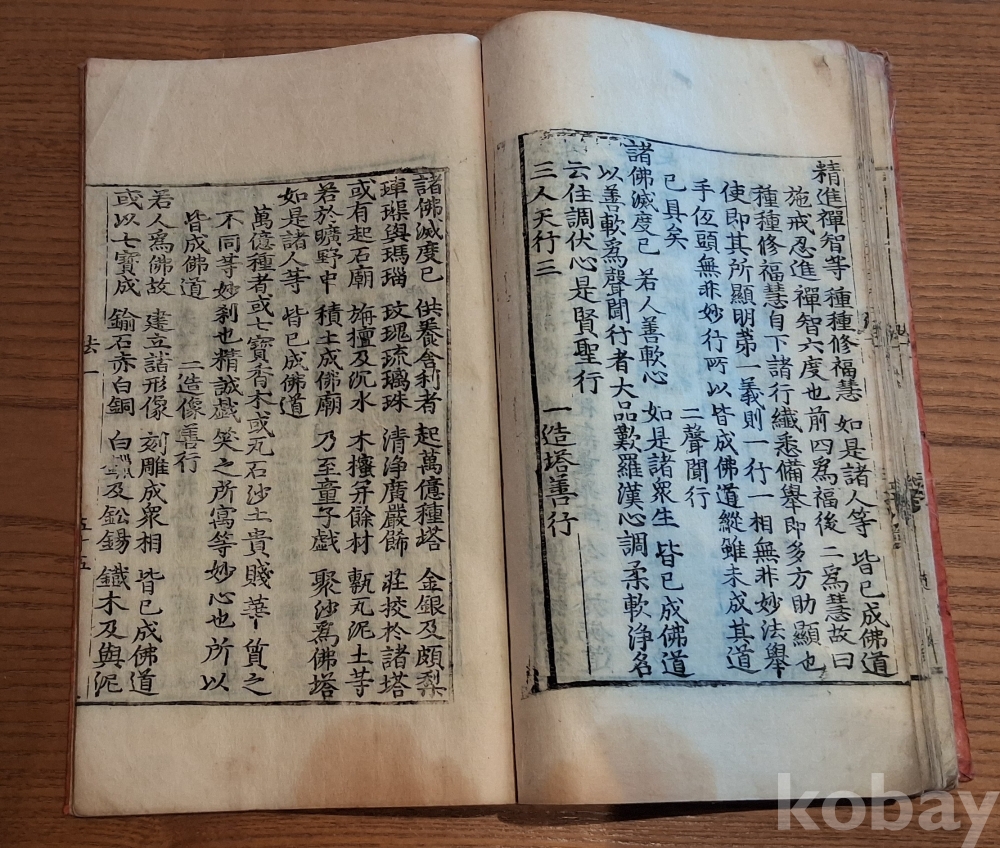 精進禪智等 種種修福慧 如是諸人等 皆已成佛道
施戒忍進禪智六度也前四爲福後二爲慧故曰
種種修福慧自下諸行纖悉備擧即多方助顯也
使即其所顯明苐一義則一行一相無非妙法擧
手伍頭無非妙行所以皆成佛道縱雖未成其道
已具矣
二聲聞行
諸佛滅度已 若人善軟心 如是諸衆生 皆已成佛道
以善軟爲聲聞行者大品歎羅漢心調柔軟淨名
云住調伏心是賢聖行
三人天行三 一造塔善行
諸佛滅度已 供養舍利者 起萬億種塔 金銀及頗梨
硨磲與瑪瑙 玫瑰琉璃珠 清淨廣嚴飾 莊挍於諸塔
或有起石廟 栴檀及沉水 木櫁并餘材 甎瓦泥土等
若於曠野中 積土成佛廟 乃至童子戲 聚沙爲佛塔
如是諸人等 皆已成佛道
萬億種者或七寶香木或瓦石沙土貴賤華質之
不同等妙刹也精誠戲笑之所寓等妙心也所以
皆成佛道
二造像善行
若人爲佛故 建立諸形像 刻雕成衆相 皆已成佛道
或以七寶成 鍮石赤白銅 白鑞及鈆錫 鐵木及與泥
法一
五十五
kobay